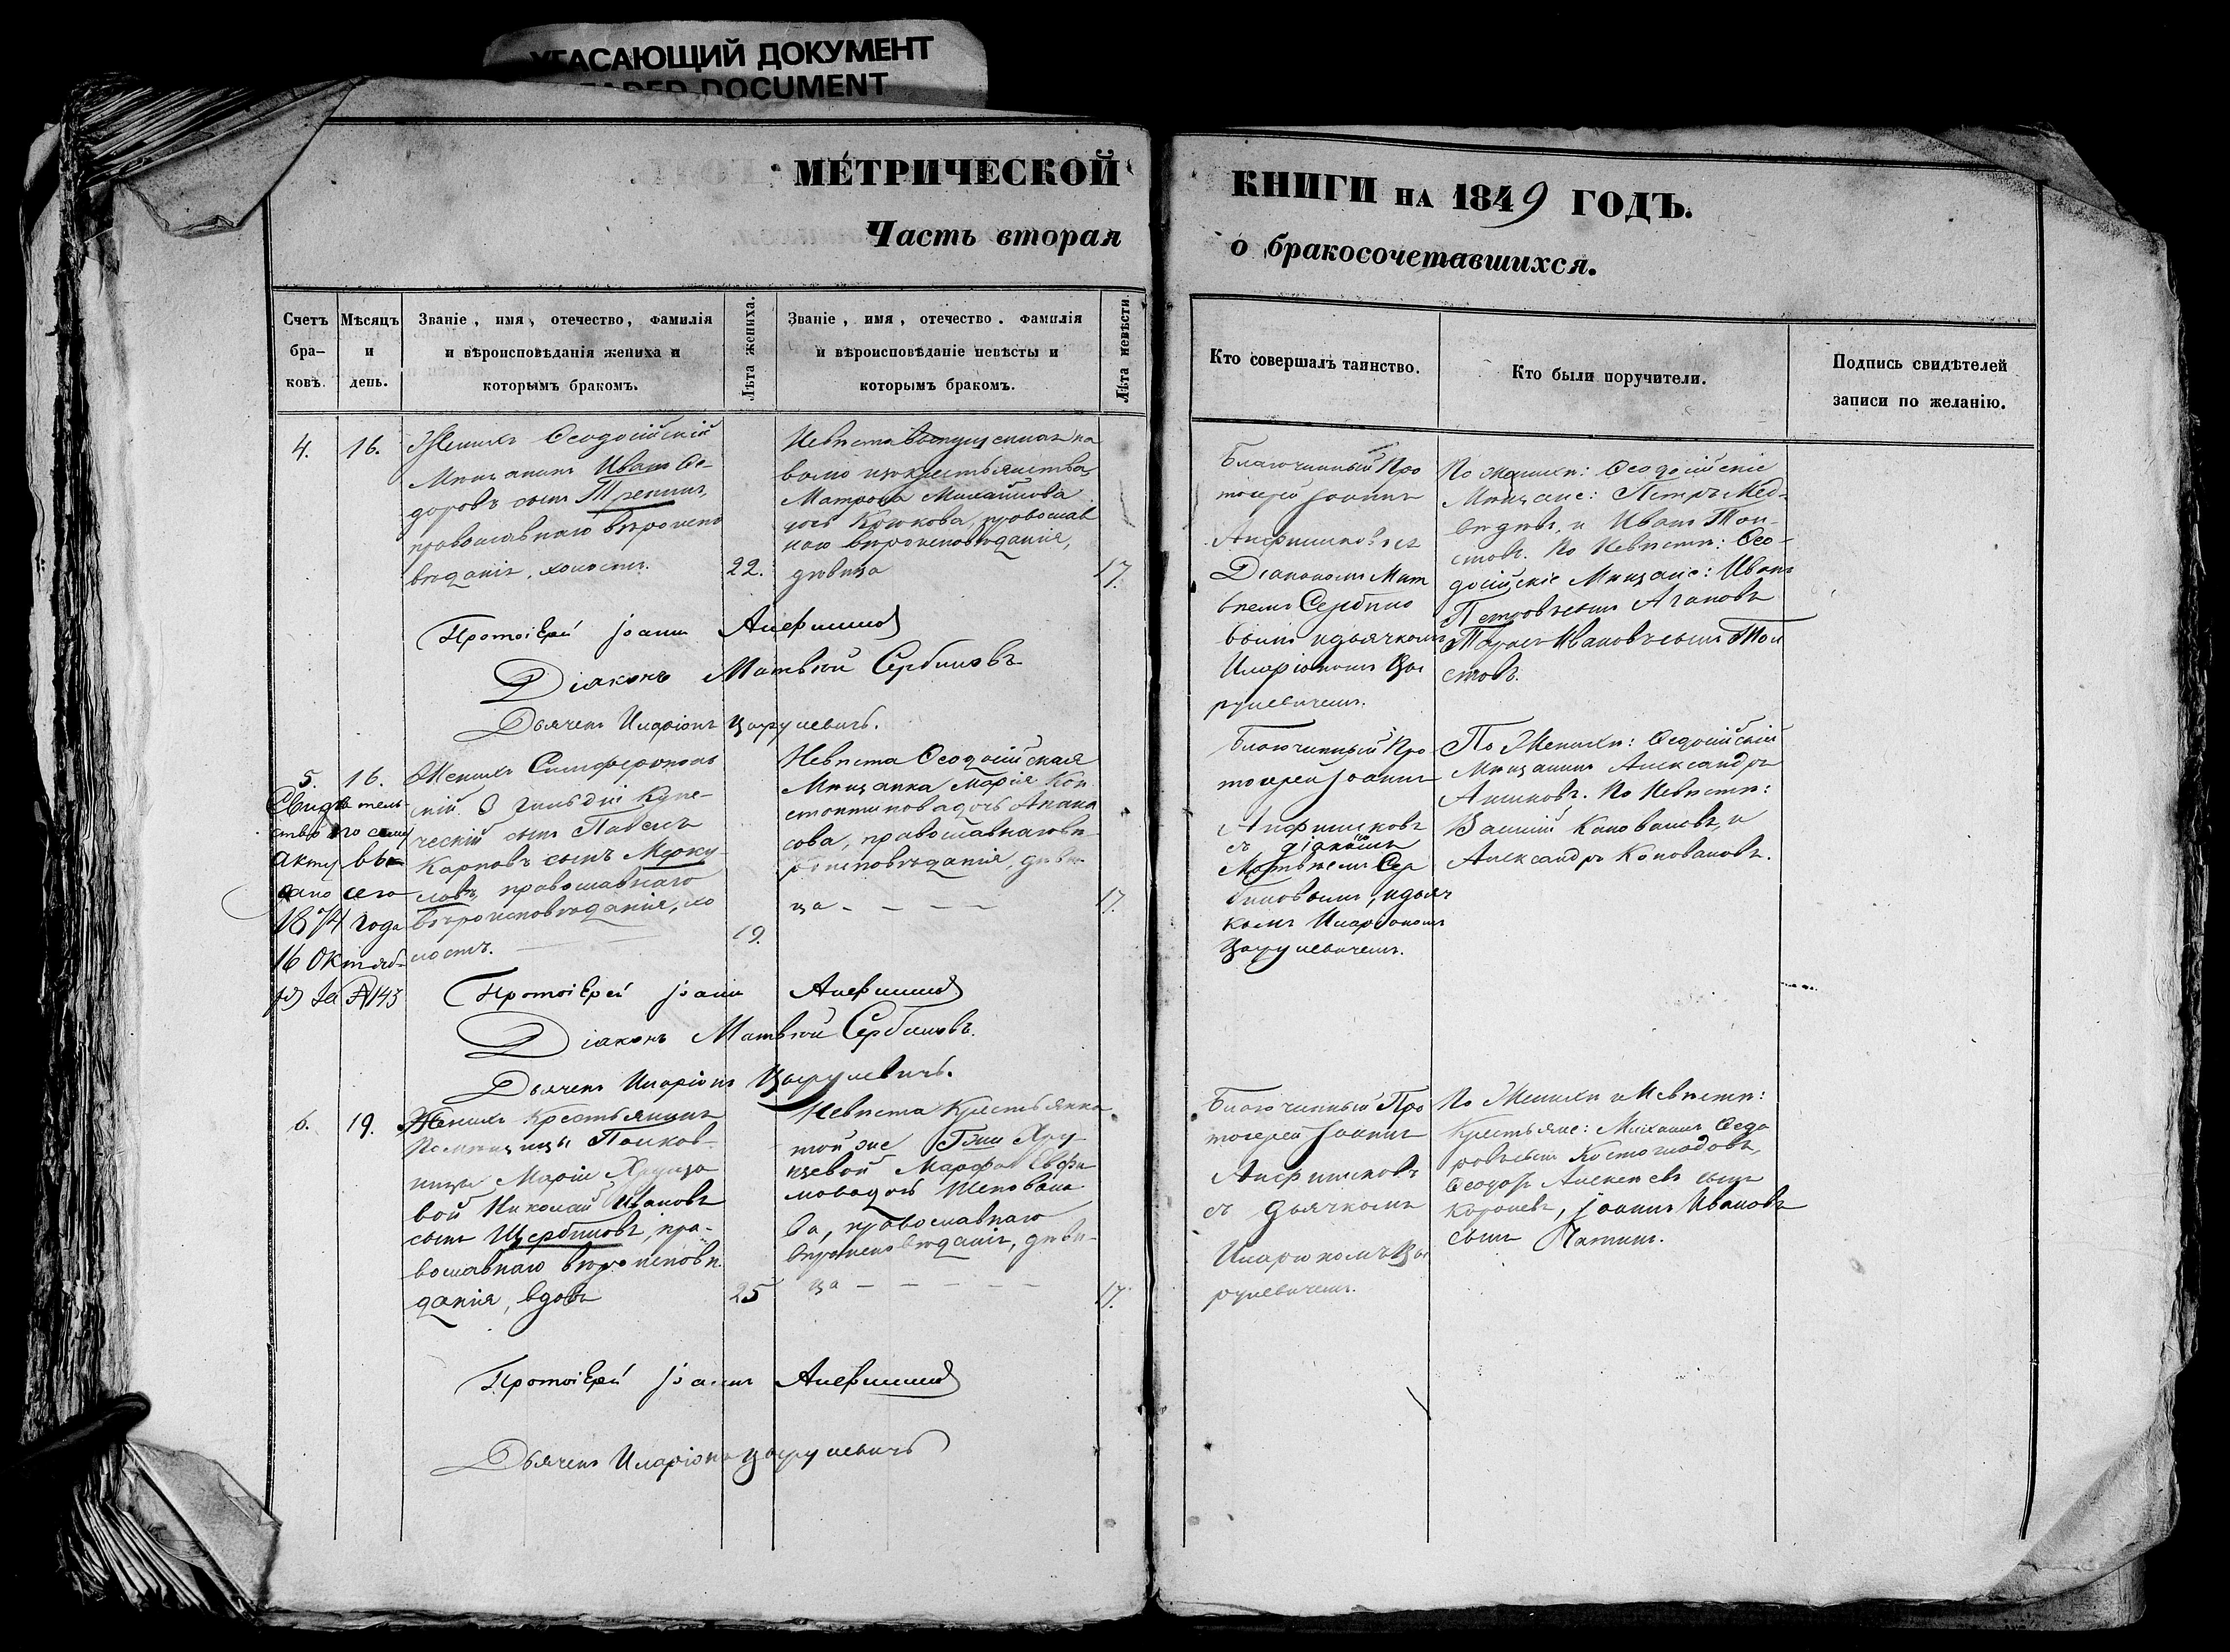 УГАСАЮЩИЙ ДОКУМЕНТ
FADED DOCUMENT
МЕ́ТРИЧЕСКОЙ
Часть вторая
КНИГИ НА 1849 ГОДЪ.
о бракосочетавшихся.
Счетъ бра- ковъ.
Мѣсяцъ и день.
Званіе, имя, отечество, фамилія
и вѣроисповѣданія жениха и
которымъ бракомъ.
Лѣта жениха.
Званіе, имя, отечество. фамилія
и вѣроисповѣданіе невѣсты и
которымъ бракомъ.
Лѣта невѣсты
Кто совершалъ таинство.
Кто были поручители.
Подпись свидѣтелей
записи по желанію.
4.
16.
Женихъ Ѳеодосійскій
Мѣщанинъ Иванъ Ѳе-
доровъ сынъ
православнаго вѣроиспо
вѣданія, холостъ.
22.
Невѣста
Матрона Михайлова
дочь Крюкова, православ
наго вѣроисповѣданія,
дѣвица
17.
Благочинный Про
тоіерей Іоаннъ
Діакономъ Мат
вѣемъ Сербино
вымъ и дьячкомъ
Иларіономъ Ца
рулевичемъ.
По Женихѣ: Ѳеодосійскіе
Мѣщане: Петръ Мед-
вѣдевъ, и Иванъ Тол-
стовъ. По Невѣстѣ: Ѳео-
досійскіе Мѣщане: Иванъ
Петровъ сынъ Агаповъ
Тарасъ Ивановъ сынъ Тол
стовъ.
Протоіерей Іоаннъ
Діаконъ Матвѣй Сербиновъ
Дьячекъ Иларіонъ Царулевичъ.
5.
16.
Свидѣтель-
ство по сему
акту вы-
дано сего
1874 года
16 Октяб-
ря за № 143
Женихъ Симферополь
скій 3 гильдіи Купе-
ческій сынъ Павелъ
Карповъ сынъ Мерку-
ловъ, православнаго
вѣроисповѣданія, хо
лостъ.
19.
Невѣста Ѳеодосійская
Мѣщанка Марія Кон
стантинова дочь Апана
сова, православнаго вѣ-
роисповѣданія, дѣви-
ца - - - -
17.
Благочинный Про
тоіерей Іоаннъ
съ діакономъ
Матвѣемъ Сер
биновымъ, и дьяч
комъ Иларіономъ
Царулевичемъ.
По Женихѣ: Ѳеодосійскій
Мѣщанинъ Александръ
Акимовъ. По Невѣстѣ:
Василій Коноваловъ, и
Александръ Коноваловъ.
Протоіерей Іоаннъ
Діаконъ Матвѣй Сербиновъ.
Дьячекъ Иларіонъ Царулевичъ.
6.
19.
Женихъ Крестьянинъ
Помѣщицы Полков-
ницы Маріи Хрущо
вой Николай Ивановъ
сынъ Щербиновъ, пра-
вославнаго вѣроисповѣ
данія, вдовъ
25
Невѣста Крестьянка
той же Гжи Хру
щевой Марфа Евфи
мова дочь
ва, православнаго
вѣроисповѣданія, дѣви-
ца - - - - -
17.
Благочинный Про
тоіерей Іоаннъ
съ дьячкомъ
Иларіономъ Ца
рулевичемъ.
По Женихѣ и Невѣстѣ:
Крестьяне: Михаилъ Ѳедо
ровъ сынъ
Ѳеодоръ Алексѣевъ сынъ
Королевъ, Іоаннъ Ивановъ
сынъ
Протоіерей Іоаннъ
Дьячекъ Иларіонъ Царулевичъ